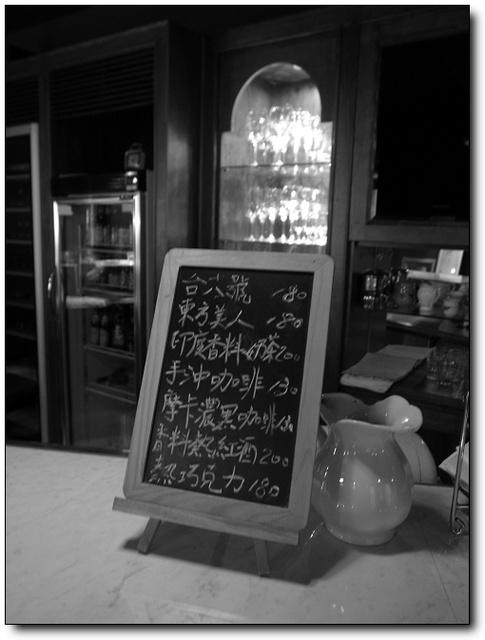 台六號 180
東方美人 180
印度香料奶茶 200
手沖咖啡 130
摩卡濃黑咖啡 130
香料熱紅酒 200
熱巧克力 180